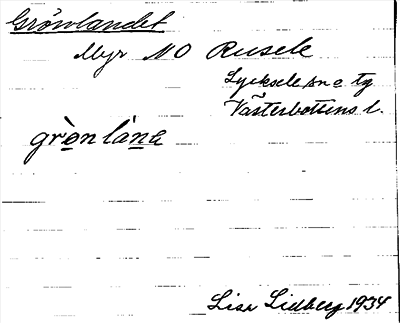 Grönlandet
Myr NO Rusele
Lycksele sn o tg
Västerbottens l.
grò̱nláṉe̱
Lisa Lidberg 1934